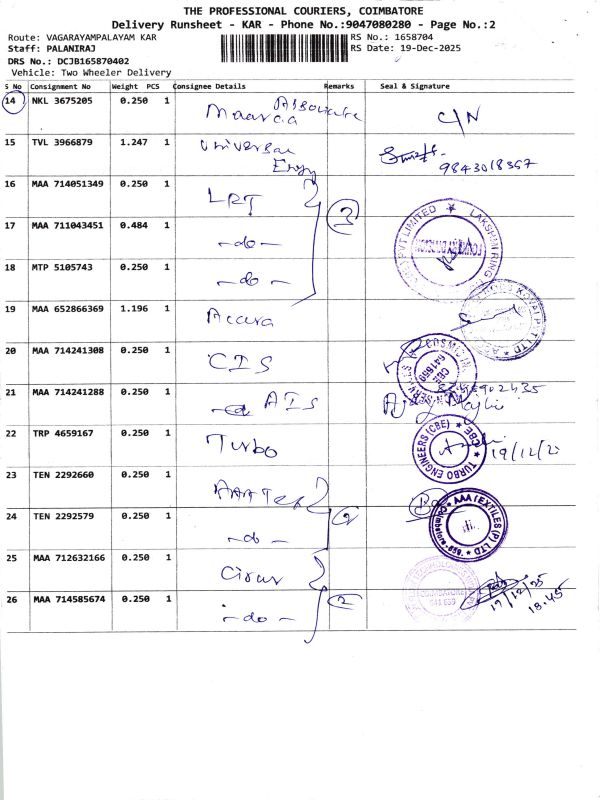 THE PROFESSIONAL COURIERS, COIMBATORE
Delivery Runsheet - KAR - Phone No.:9047080280 - Page No.:2
Route: VAGARAYAMPALAYAM KAR
RS No.: 1658704
Staff: PALANIRAJ
RS Date: 19-Dec-2025
DRS No.: DCJB165870402
Vehicle: Two Wheeler Delivery
S No Consignment No Weight PCS Consignee Details Remarks Seal & Signature
14 NKL 3675205 0.250 1 C/N
15 TVL 3966879 1.247 1 Universal
9843018367
16 MAA 714051349 0.250 1 LRT 3
17 MAA 711043451 0.484 1 -do-
18 MTP 5105743 0.250 1 -do-
19 MAA 652866369 1.196 1 Accura
20 MAA 714241308 0.250 1 CIS
21 MAA 714241288 0.250 1 AIS
22 TRP 4659167 0.250 1 Turbo TURBO ENGINEERS (CBE) CBE 19/12/2
23 TEN 2292660 0.250 1
24 TEN 2292579 0.250 1 -do- 2 AAA TEXTILES (P) LTD Coimbatore-659
25 MAA 712632166 0.250 1 Cirus
26 MAA 714585674 0.250 1 -do- 2 COIMBATORE 641 659 19/12/25
18.45